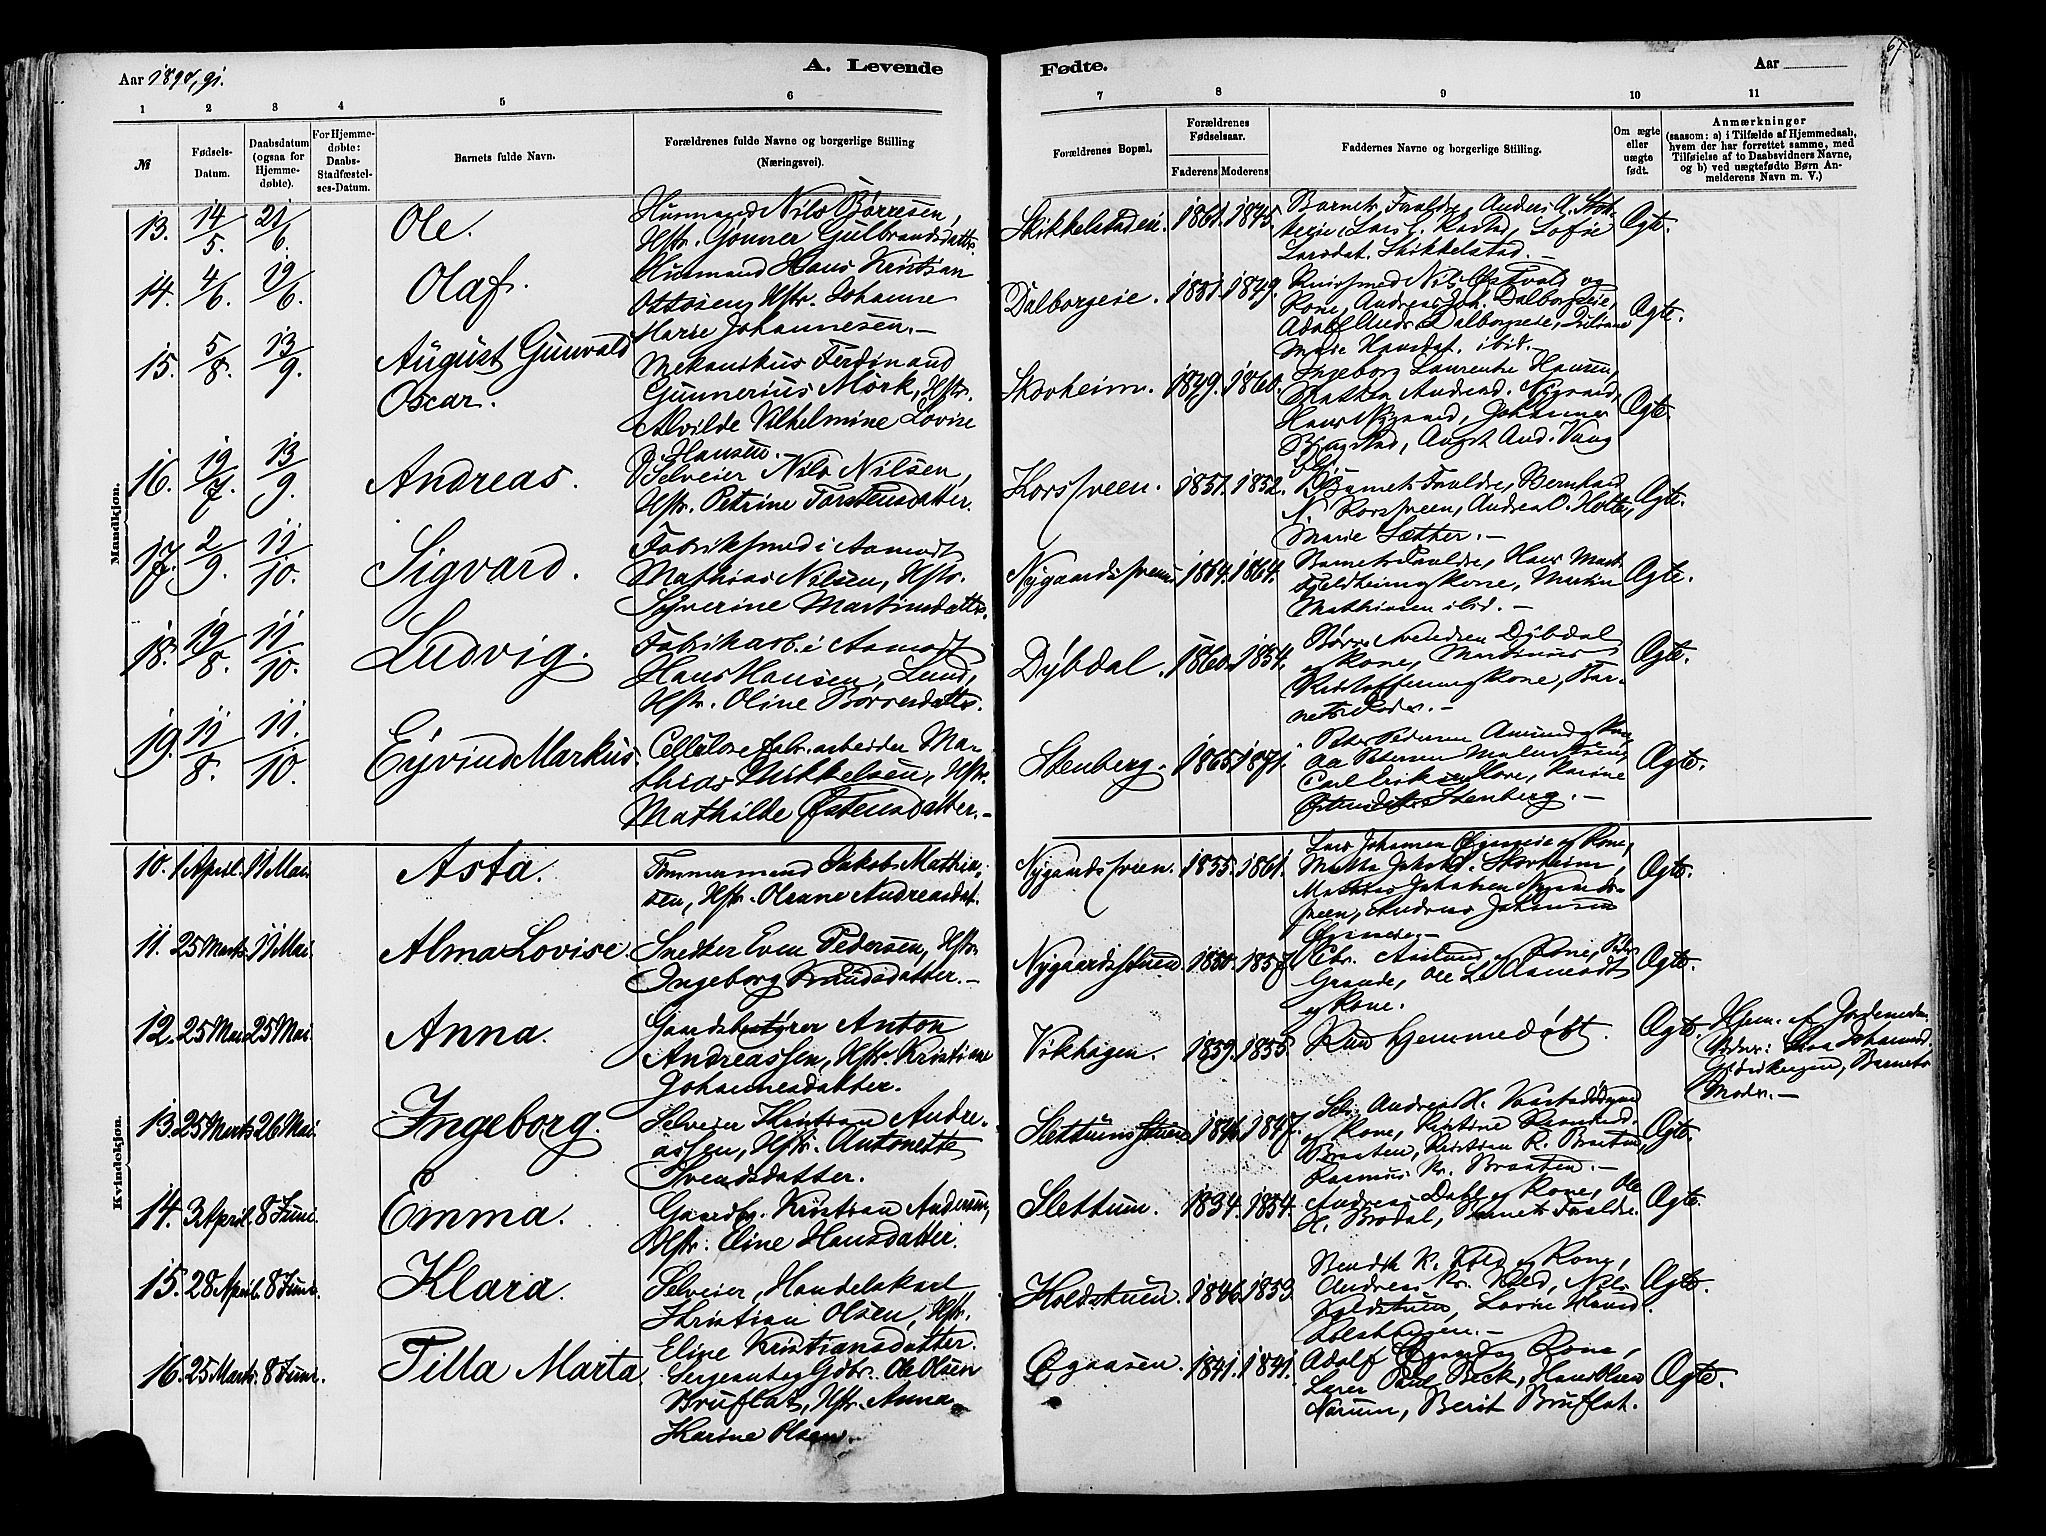 Aar 1890, 91.
A. Levende
Fødte.
Aar
67
1 2 3 4 5 6 7 8 9 10 11
№
Fødsels-Datum.
Daabsdatum (ogsaa for Hjemmedøbte).
For Hjemmedøbte: Daabs-Stadfæstelses-Datum.
Barnets fulde Navn.
Forældrenes fulde Navne og borgerlige Stilling (Næringsvei).
Forældrenes Bopæl.
Forældrenes Fødselsaar.
Faderens Moderens
Faddernes Navne og borgerlige Stilling.
Om ægte eller uægte født.
Anmærkninger
(saasom: a) i Tilfælde af Hjemmedaab, hvem der har forrettet samme, med Tilføielse af to Daabsvidners Navne, og b) ved uægtefødte Børn Anmelderens Navn m. V.)
Mandkjøn.
13. 14/5. 21/6. Ole.
Husmand Nils Børresen,
Hstr. Gonner Gulbrandsdatter
Skikkelstadeie. 1861. 1845.
Barnets Forældre, Anders A.
Lars L. Rastad, Sofie
Larsdat. Skikkelstad.
Ægte.
14. 4/6. 19/6. Olaf.
Husmand Hans Kristian
Ottosen, Hstr. Johanne
Marie Johannesen.
Dalborgeie. 1851. 1849.
Knivsmed Nils Østvold og
Kone, Andreas Joh. Dalborgeie,
Adolf Ands. Dalborgeie,
Marie Hansdat. ibid.
Ægte.
15. 5/8. 13/9. August Gunvald
Oscar.
Mekanikus Ferdinand
Gunnerius Mørk, Hstr.
Alvilde Vilhelmine Lovise
Hansen.
Skovheim. 1849. 1860.
Ingeborg Laurentse Hansen,
Mathea Andreasd. Nygaard,
Hans Nygaard, Johannes
Bragstad, August And. Vang
Ægte.
16. 19/7. 13/9. Andreas.
Selveier Nils Nilsen,
Hstr. Petrine Torstensdatter.
Korssveen. 1851. 1852.
Barnets Forældre, Bernhard
N. Korssveen, Andrea O. Holte,
Marie Sæther.
Ægte.
17. 2/9. 11/10. Sigvard.
Fabriksmed i Aamodt
Mathias Nilsen, Hstr.
Syverine Martinsdatter.
Nygaardssveen 1864. 1864.
Barnets Forældre, Hans Mart.
Fjeldheim og Kone, Martin
Mathiasen ibid.
Ægte.
18. 19/8. 11/10. Ludvig.
Fabrikarb. i Aamodt
Hans Hansen, Lund,
Hstr. Oline Børresdatter.
Dybdal. 1860. 1854.
Børre Svendsen Dybdal
og Kone, Martinus
Kristoffersen og Kone, Barnets Fader.
Ægte.
19. 11/8. 11/10. Eyvind Markus.
Cellulosefabr. arbeider Mathias Mikkelsen, Hstr.
Mathilde Østensdatter.
Stenberg. 1865. 1871.
Peter Pedersen Amund
Carl Eriksen Kone, Karine
Stenberg.
Ægte.
Kvindekjøn.
10. 1 April. 11 Mai. Asta.
Tømmermand Jakob Mathiasen, Hstr. Oleane Andreasdat.
Nygaardssveen. 1855. 1861.
Lars Johansen Øgaaseie og Kone,
Mathea Jakobsd. Skovheim,
Mathias Jakobsen Nygaardssveen, Andreas Johansen
Ægte.
11. 25 Marts. 11 Mai. Alma Lovise.
Snekker Even Pedersen, Hstr.
Ingeborg Knudsdatter.
Nygaardsstuen 1850. 1857.
Chr. Aaslund og Kone, Peter
Grande, Ole L. Aamodt
og Kone.
Ægte.
12. 25 Mars 25 Mai. Anna.
Gaardbestyrer Anton
Andreassen, Hstr. Kristine
Johannesdatter.
Vikhagen. 1859. 1855.
Kun hjemmedøbt.
Ægte.
Hjem. af Jordemoder. Johannesd.
Barnets
Moder.
13. 25 Marts 26 Mai. Ingeborg.
Selveier Kristian Andreassen, Hstr. Antonette
Svendsdatter.
Slettumsstuen 1846. 1847.
Andreas H.
og Kone, Kristine Rasmusd.
Braaten, Kristian R. Braaten,
Rasmus Kr. Braaten.
Ægte.
14. 3 April. 8 Juni. Emma.
Gaardbr. Kristian Andersen,
Hstr. Eline Hansdatter.
Slettum. 1834. 1854.
Andreas Dahl og Kone, Ole
H. Brodal, Barnets Forældre.
Ægte.
15. 28 April. 8 Juni. Klara.
Selveier, Handelskarl
Christian Olsen, Hstr.
Eline Kristiansdatter.
Holdstuen. 1846. 1853.
Bendik K. Kold og Kone,
Andreas Kr. Kold, Nils
Koldstuen, Lovise Hansd.
Ægte.
16. 25 Marts. 8 Juni. Tilla Marta
Sergeant og Gdbr. Ole Olsen
Bruflat, Hstr. Anna
Karine Olsen.
Øgaasen. 1841. 1841.
Adolf Øgaard og Kone,
Lærer Paul Beck, Hans Olsen
Narum, Berit Bruflat.
Ægte.